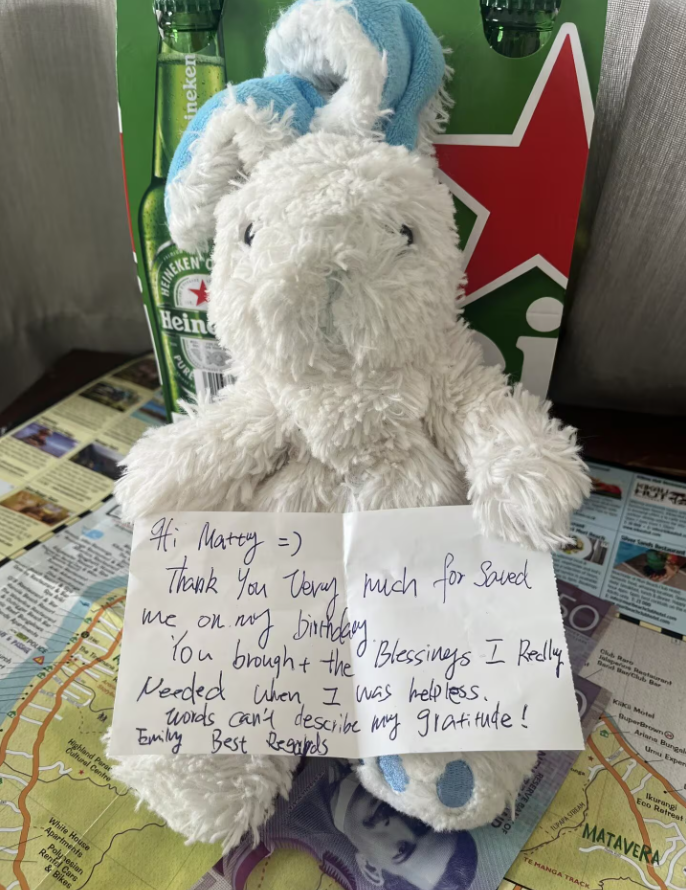 ineken
HEINEKEN
Heine
Hi Matty =)
Thank You Very much for Saved
me on my birthday
You brought the Blessings I Really
Needed when I was helpless.
words can't describe my gratitude!
Emily Best Regards
50
Club Raro Restaurant
KiiKii Motel
SuperBrown
Ariana Bungalows
Highland Paradise
Cultural Centre
White House
Apartments
Polynesian
Rental Cars
& Bikes
Ikurangi
Eco Retreat
MATAVERA
TE MANGA TRACK